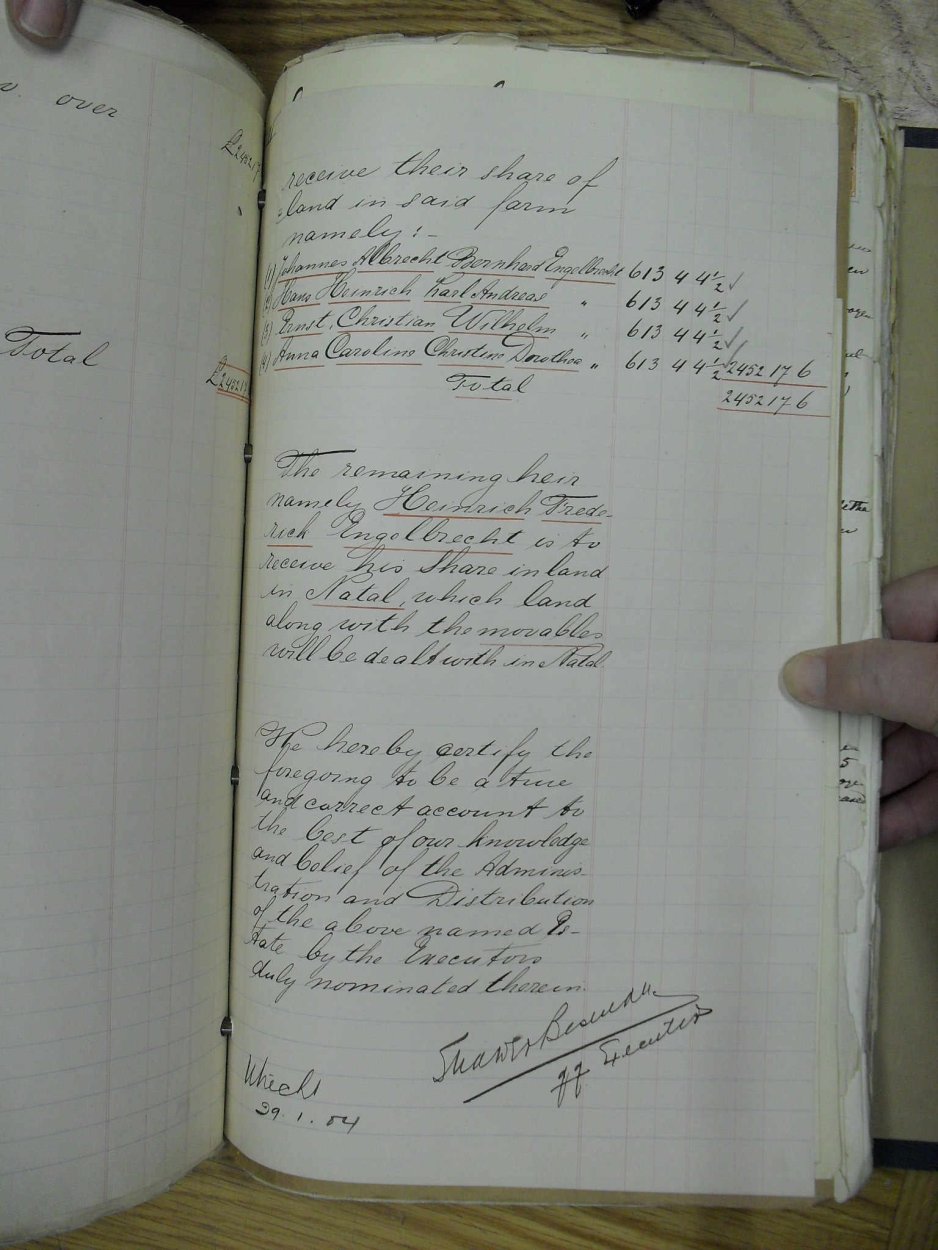 over
£2452 17
Total
£2452 17
receive their share of
land in said farm
namely:-
(1) Johannes Albrecht Bernhard Engelbrecht 613 4 4½ ✓
(2) Hans Heinrich Karl Andreas " 613 4 4½ ✓
(3) Ernst Christian Wilhelm " 613 4 4½ ✓
(4) Anna Caroline Christine Dorothea " 613 4 4½ ✓ 2452 17 6
Total 2452 17 6
The remaining heir
namely Heinrich Frede-
rick Engelbrecht is to
receive his share in land
in Natal, which land
along with the movables
will be dealt with in Natal.
We hereby certify the
foregoing to be a true
and correct account to
the best of our knowledge
and belief of the Adminis-
tration and Distribution
of the above named Es-
tate by the Executors
duly nominated therein.
qq Executors
Utrecht
29.1.04